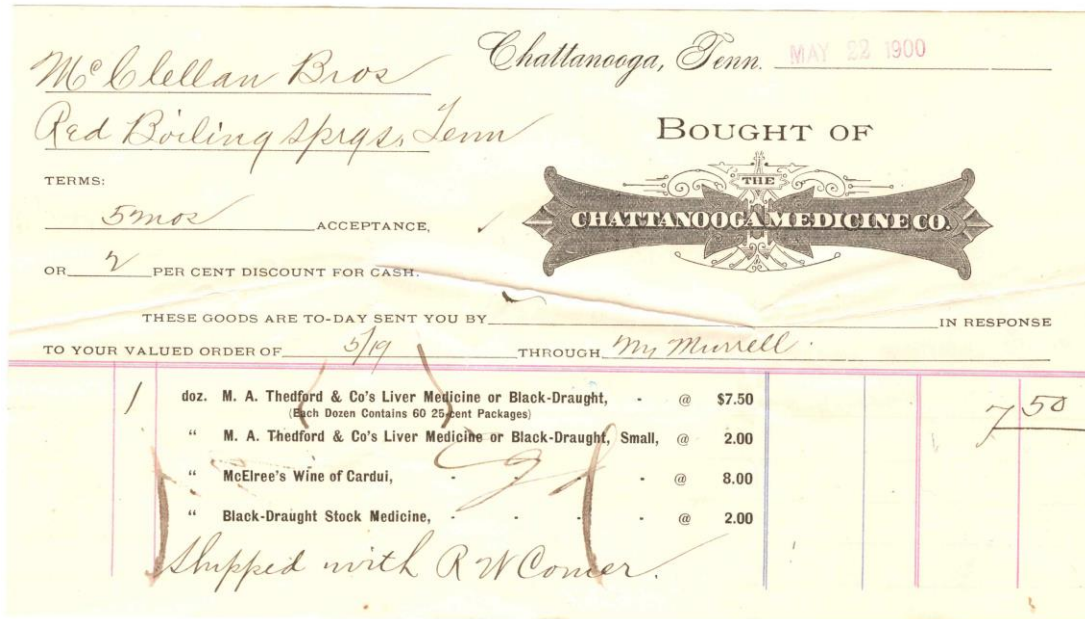 McClellan Bros
Red Boiling Sprgs, Tenn
Chattanooga, Tenn. MAY 22 1900
BOUGHT OF
THE
CHATTANOOGA MEDICINE CO.
TERMS:
5 mos ACCEPTANCE,
OR 2 PER CENT DISCOUNT FOR CASH.
THESE GOODS ARE TO-DAY SENT YOU BY IN RESPONSE
TO YOUR VALUED ORDER OF 5/19 THROUGH Murrell
1 doz. M. A. Thedford & Co's Liver Medicine or Black-Draught, - @ $7.50 7 50
(Each Dozen Contains 60 25-cent Packages)
" M. A. Thedford & Co's Liver Medicine or Black-Draught, Small, @ 2.00
" McElree's Wine of Cardui, - - - - @ 8.00
" Black-Draught Stock Medicine, - - - - @ 2.00
Shipped with R W Comer.